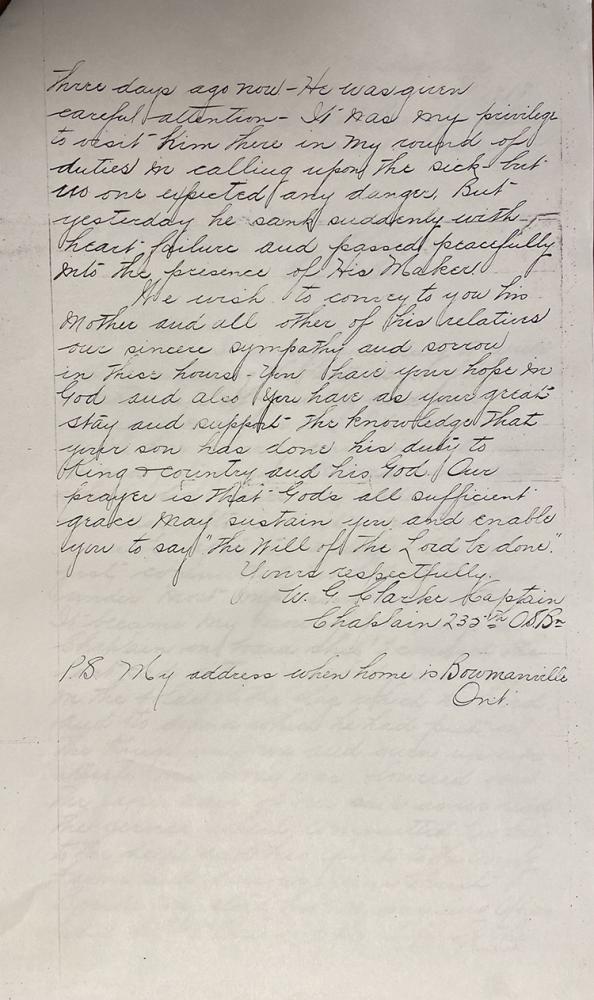 three days ago now - He was given
careful attention - It was my privilege
to visit him there in my round of
duties in calling upon the sick - but
no one expected any danger. But
yesterday he sank suddenly with
heart failure and passed peacefully
into the presence of His Maker.
We wish to convey to you his
Mother and all other of his relatives
our sincere sympathy and sorrow
in these hours - You have your hope in
God and also you have as your great
stay and support the knowledge that
your son has done his duty to
King & country and his God. Our
prayer is that Gods all sufficient
grace may sustain you and enable
you to say "The Will of the Lord be done."
Yours respectfully.
W. G. Clarke Captain
Chaplain 235th OS Bn
P.S. My address when home is Bowmanville
Ont.